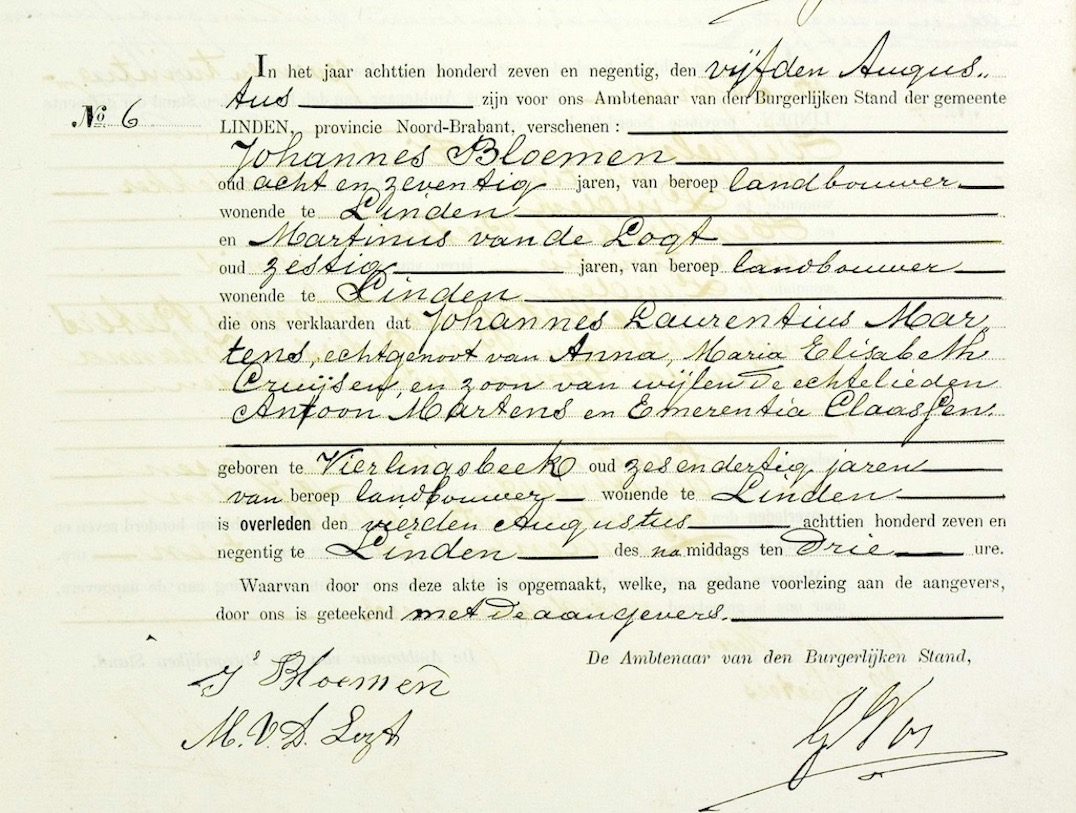 In het jaar achttien honderd zeven en negentig, den vijfden Augus„
tus zijn voor ons Ambtenaar van den Burgerlijken Stand der gemeente
No 6
LINDEN, provincie Noord-Brabant, verschenen :
Johannes Bloemen
oud acht en zeventig jaren, van beroep landbouwer
wonende te Linden
en Martinus van de Logt
oud zestig jaren, van beroep landbouwer
wonende te Linden
die ons verklaarden dat Johannes Laurentius Mar„
tens, echtgenoot van Anna, Maria Elisabeth
Cruijsen, en zoon van wijlen de echtelieden
Antoon Martens en Emerentia Claassen.
geboren te Vierlingsbeek oud zes en dertig jaren
van beroep landbouwer wonende te Linden
is overleden den vierden Augustus achttien honderd zeven en
negentig te Linden des namiddags ten drie ure.
Waarvan door ons deze akte is opgemaakt, welke, na gedane voorlezing aan de aangevers,
door ons is geteekend met de aangevers.
De Ambtenaar van den Burgerlijken Stand,
Js Bloemen
M. V. D. Logt
G Vos